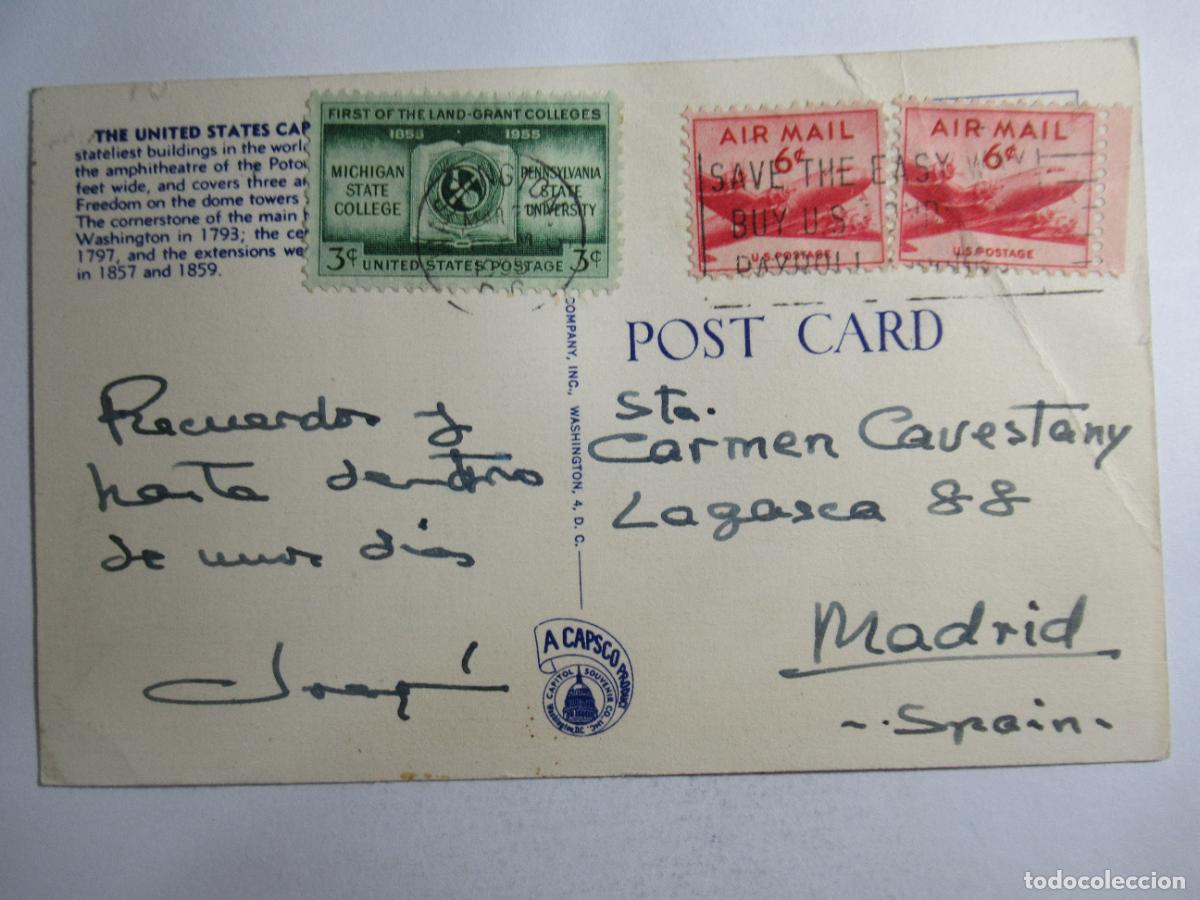 THE UNITED STATES CAP
stateliest buildings in the world
the amphitheatre of the Poto
feet wide, and covers three a
Freedom on the dome towers
The cornerstone of the main
Washington in 1793; the ce
1797, and the extensions we
in 1857 and 1859.
FIRST OF THE LAND-GRANT COLLEGES
1855 1955
MICHIGAN STATE COLLEGE
PENNSYLVANIA STATE UNIVERSITY
3¢ UNITED STATES POSTAGE 3¢
AIR MAIL
6¢
U.S. POSTAGE
AIR MAIL
6¢
U.S. POSTAGE
SAVE THE EASY WAY
BUY U.S.
PAYROLL
POST CARD
COMPANY, INC., WASHINGTON, 4, D. C.
Recuerdos y
hasta dentro
de unos dias
Sta.
Carmen Cavestany
Lagasca 88
Madrid
Spain
A CAPSCO PRODUCT
CAPITOL SOUVENIR CO. INC.
Washington, D.C.
todocoleccion